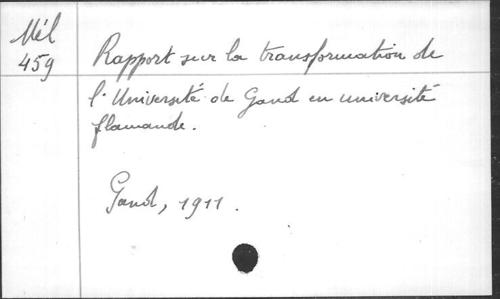 Mél
459
Rapport sur la transformation de
l'Université de Gand en université
flamande.
Gand, 1911.